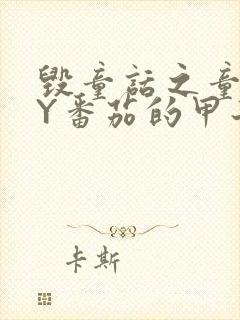 毁童话之童
Y番茄的甲
卡斯